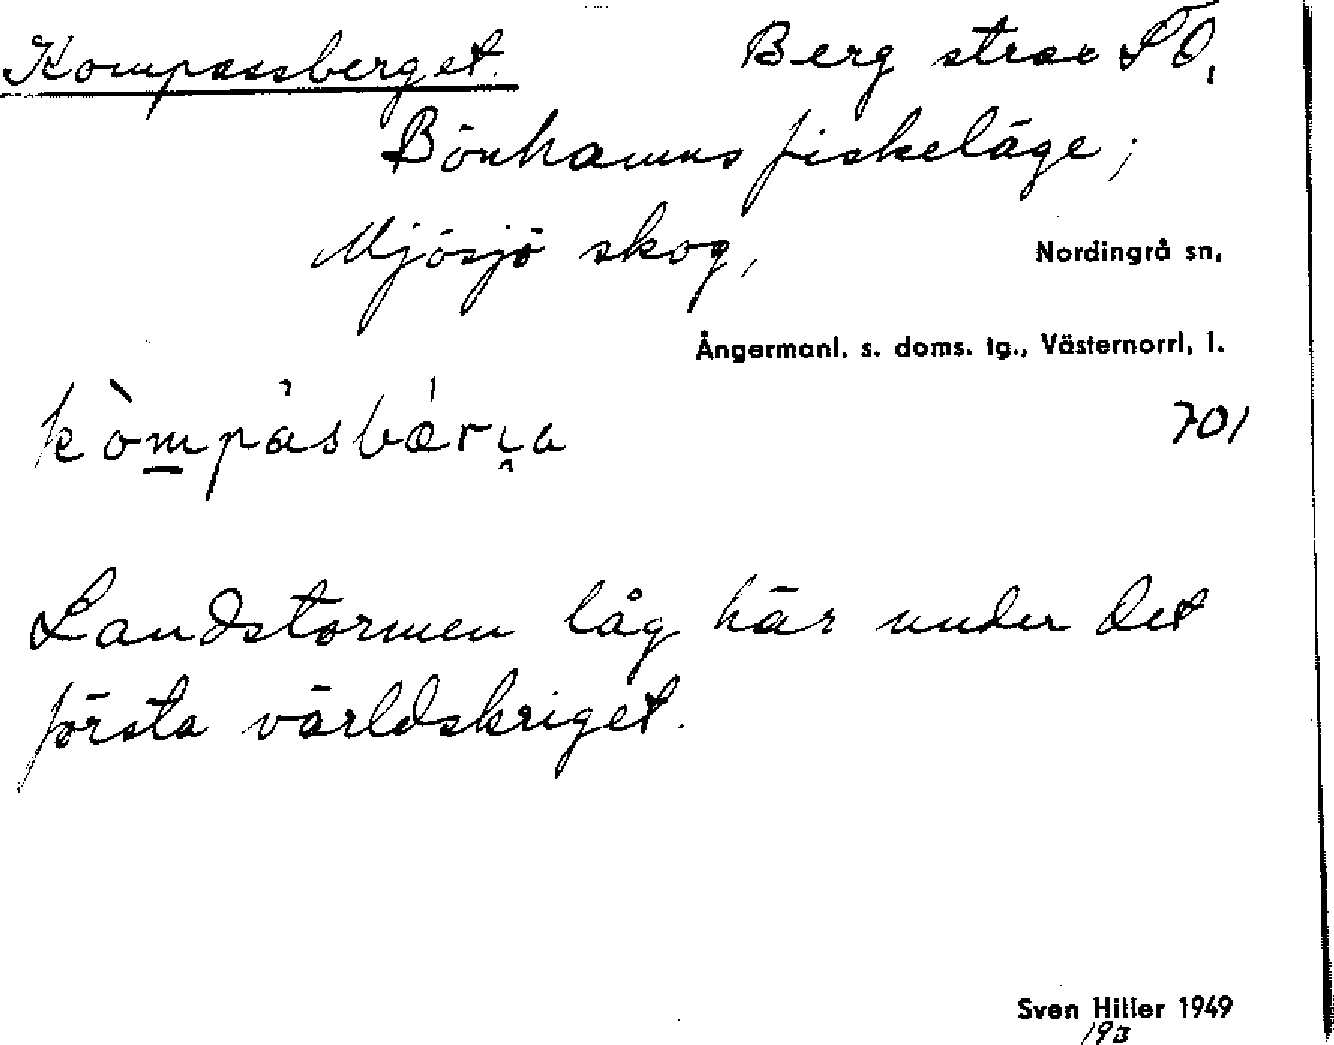 Kompassberget. Berg strax SO,
Bönhamns fiskeläge;
Mjösjö skog, Nordingrå sn,
Ångermanl. s. doms. tg., Västernorrl. l.
701
Landstormen låg här under det
första världskriget.
Sven Hiller 1949
193